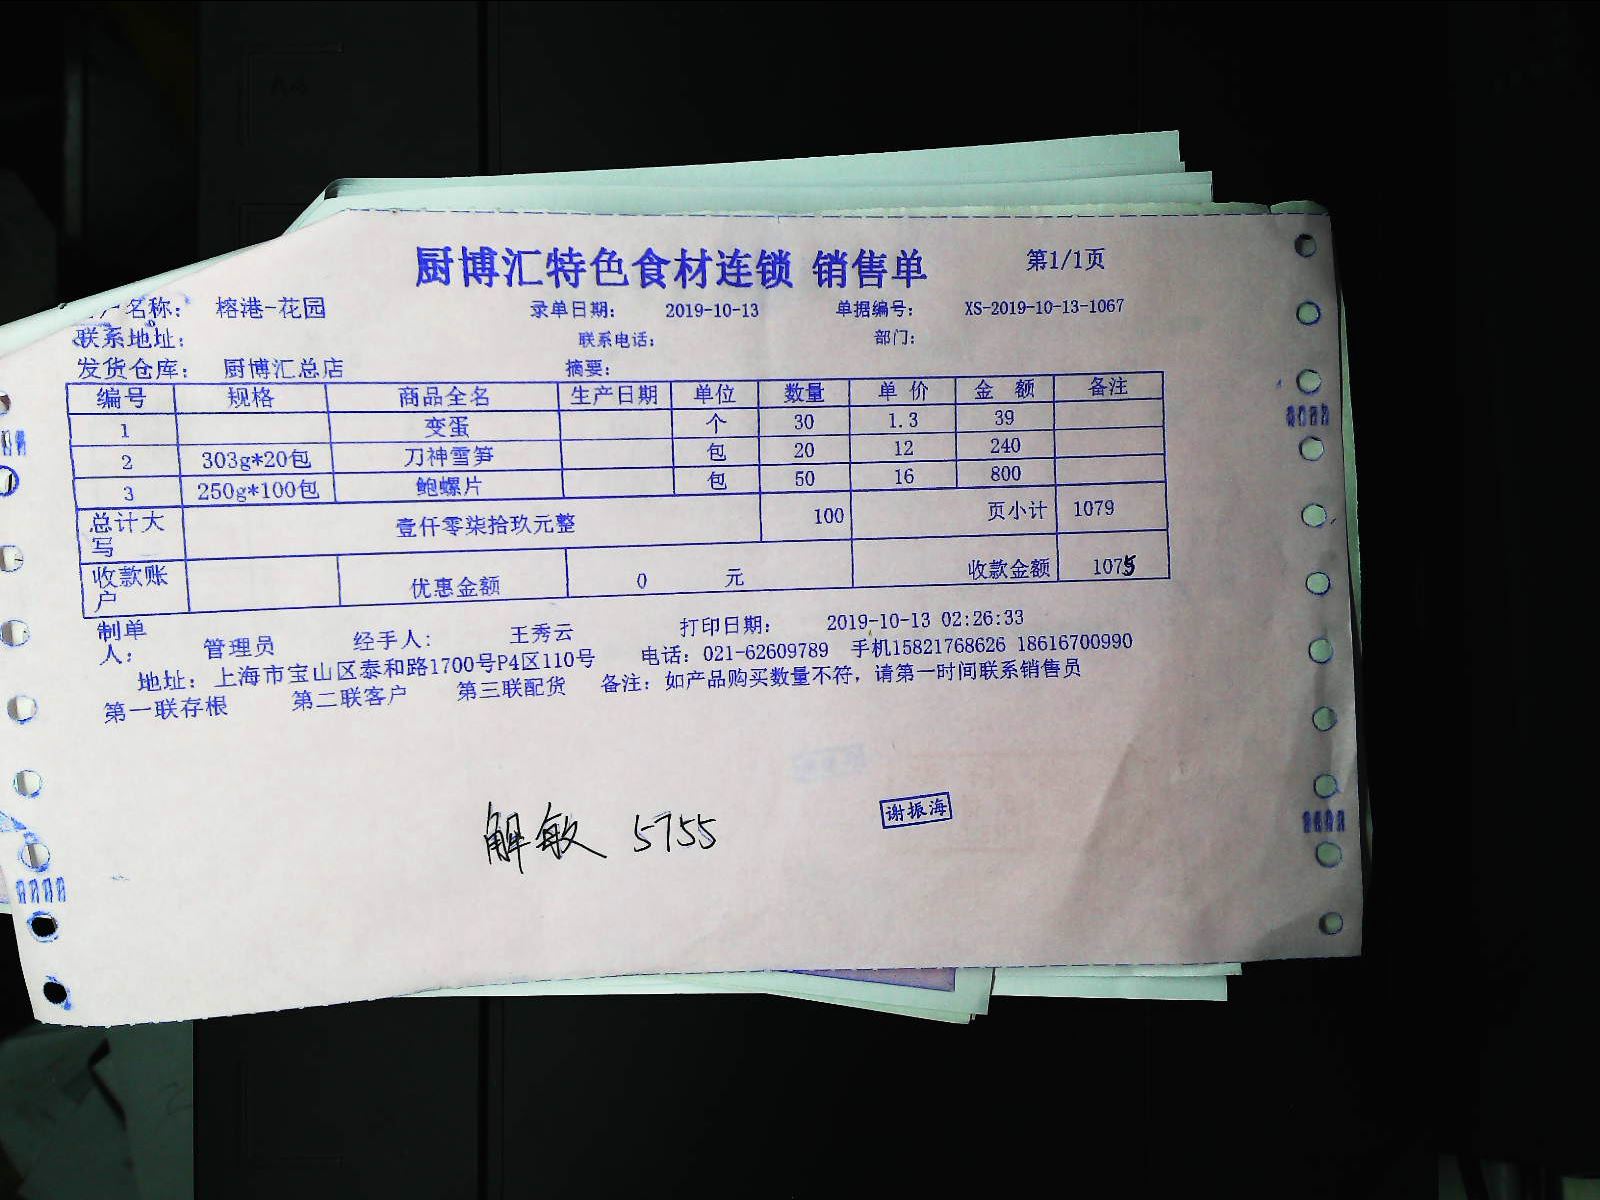 厨博汇特色食材连锁 销售单 第1/1页
户名称： 榕港-花园 录单日期： 2019-10-13 单据编号： XS-2019-10-13-1067
联系地址： 联系电话： 部门：
发货仓库： 厨博汇总店 摘要：
编号 规格 商品全名 生产日期 单位 数量 单 价 金 额 备注
1 变蛋 个 30 1.3 39
2 303g*20包 刀神雪笋 包 20 12 240
3 250g*100包 鲍螺片 包 50 16 800
总计大写 壹仟零柒拾玖元整 100 页小计 1079
收款账户 优惠金额 0 元 收款金额 1075
制单人： 管理员 经手人： 王秀云 打印日期： 2019-10-13 02:26:33
地址： 上海市宝山区泰和路1700号P4区110号 电话：021-62609789 手机15821768626 18616700990
第一联存根 第二联客户 第三联配货 备注：如产品购买数量不符，请第一时间联系销售员
解敏 5755
谢振海